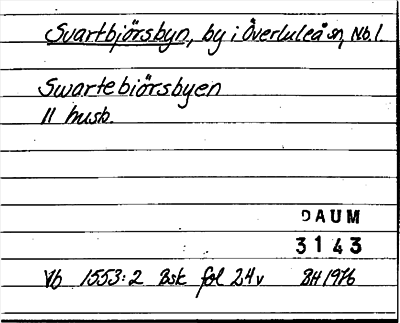 Svartbjörsbyn, by i Överluleå sn, Nb.l.
Swartebiörsbyen
11 husb.
DAUM
3143
Vb 1553:2 Bsk fol 24v BH 1976